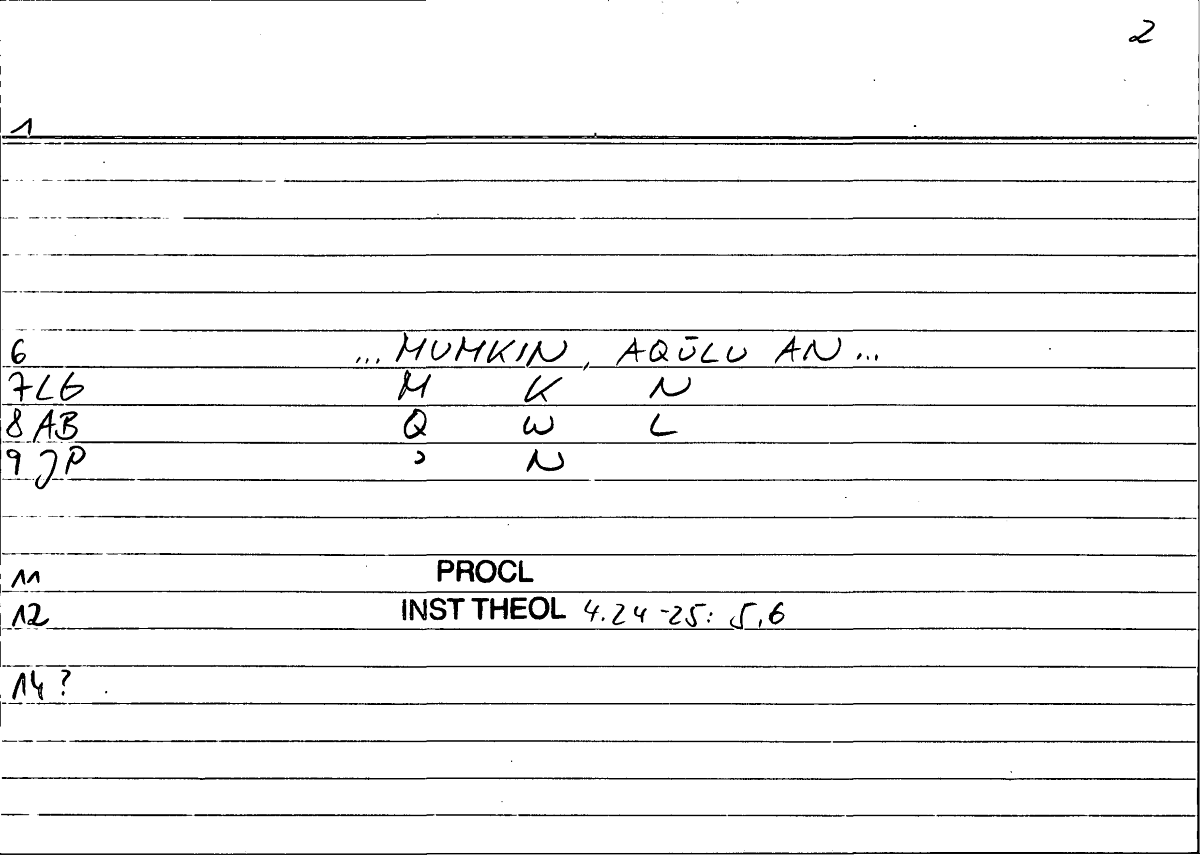 2
1
6 ... MUMKIN, AQŪLU AN ...
7 LG M K N
8 AB Q W L
9 JP ʾ N
11 PROCL
12 INST THEOL 4.24-25: 5,6
14 ?